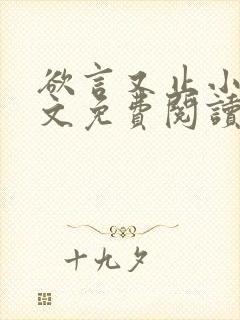 欲言又止小
文免費閱讀
十九夕